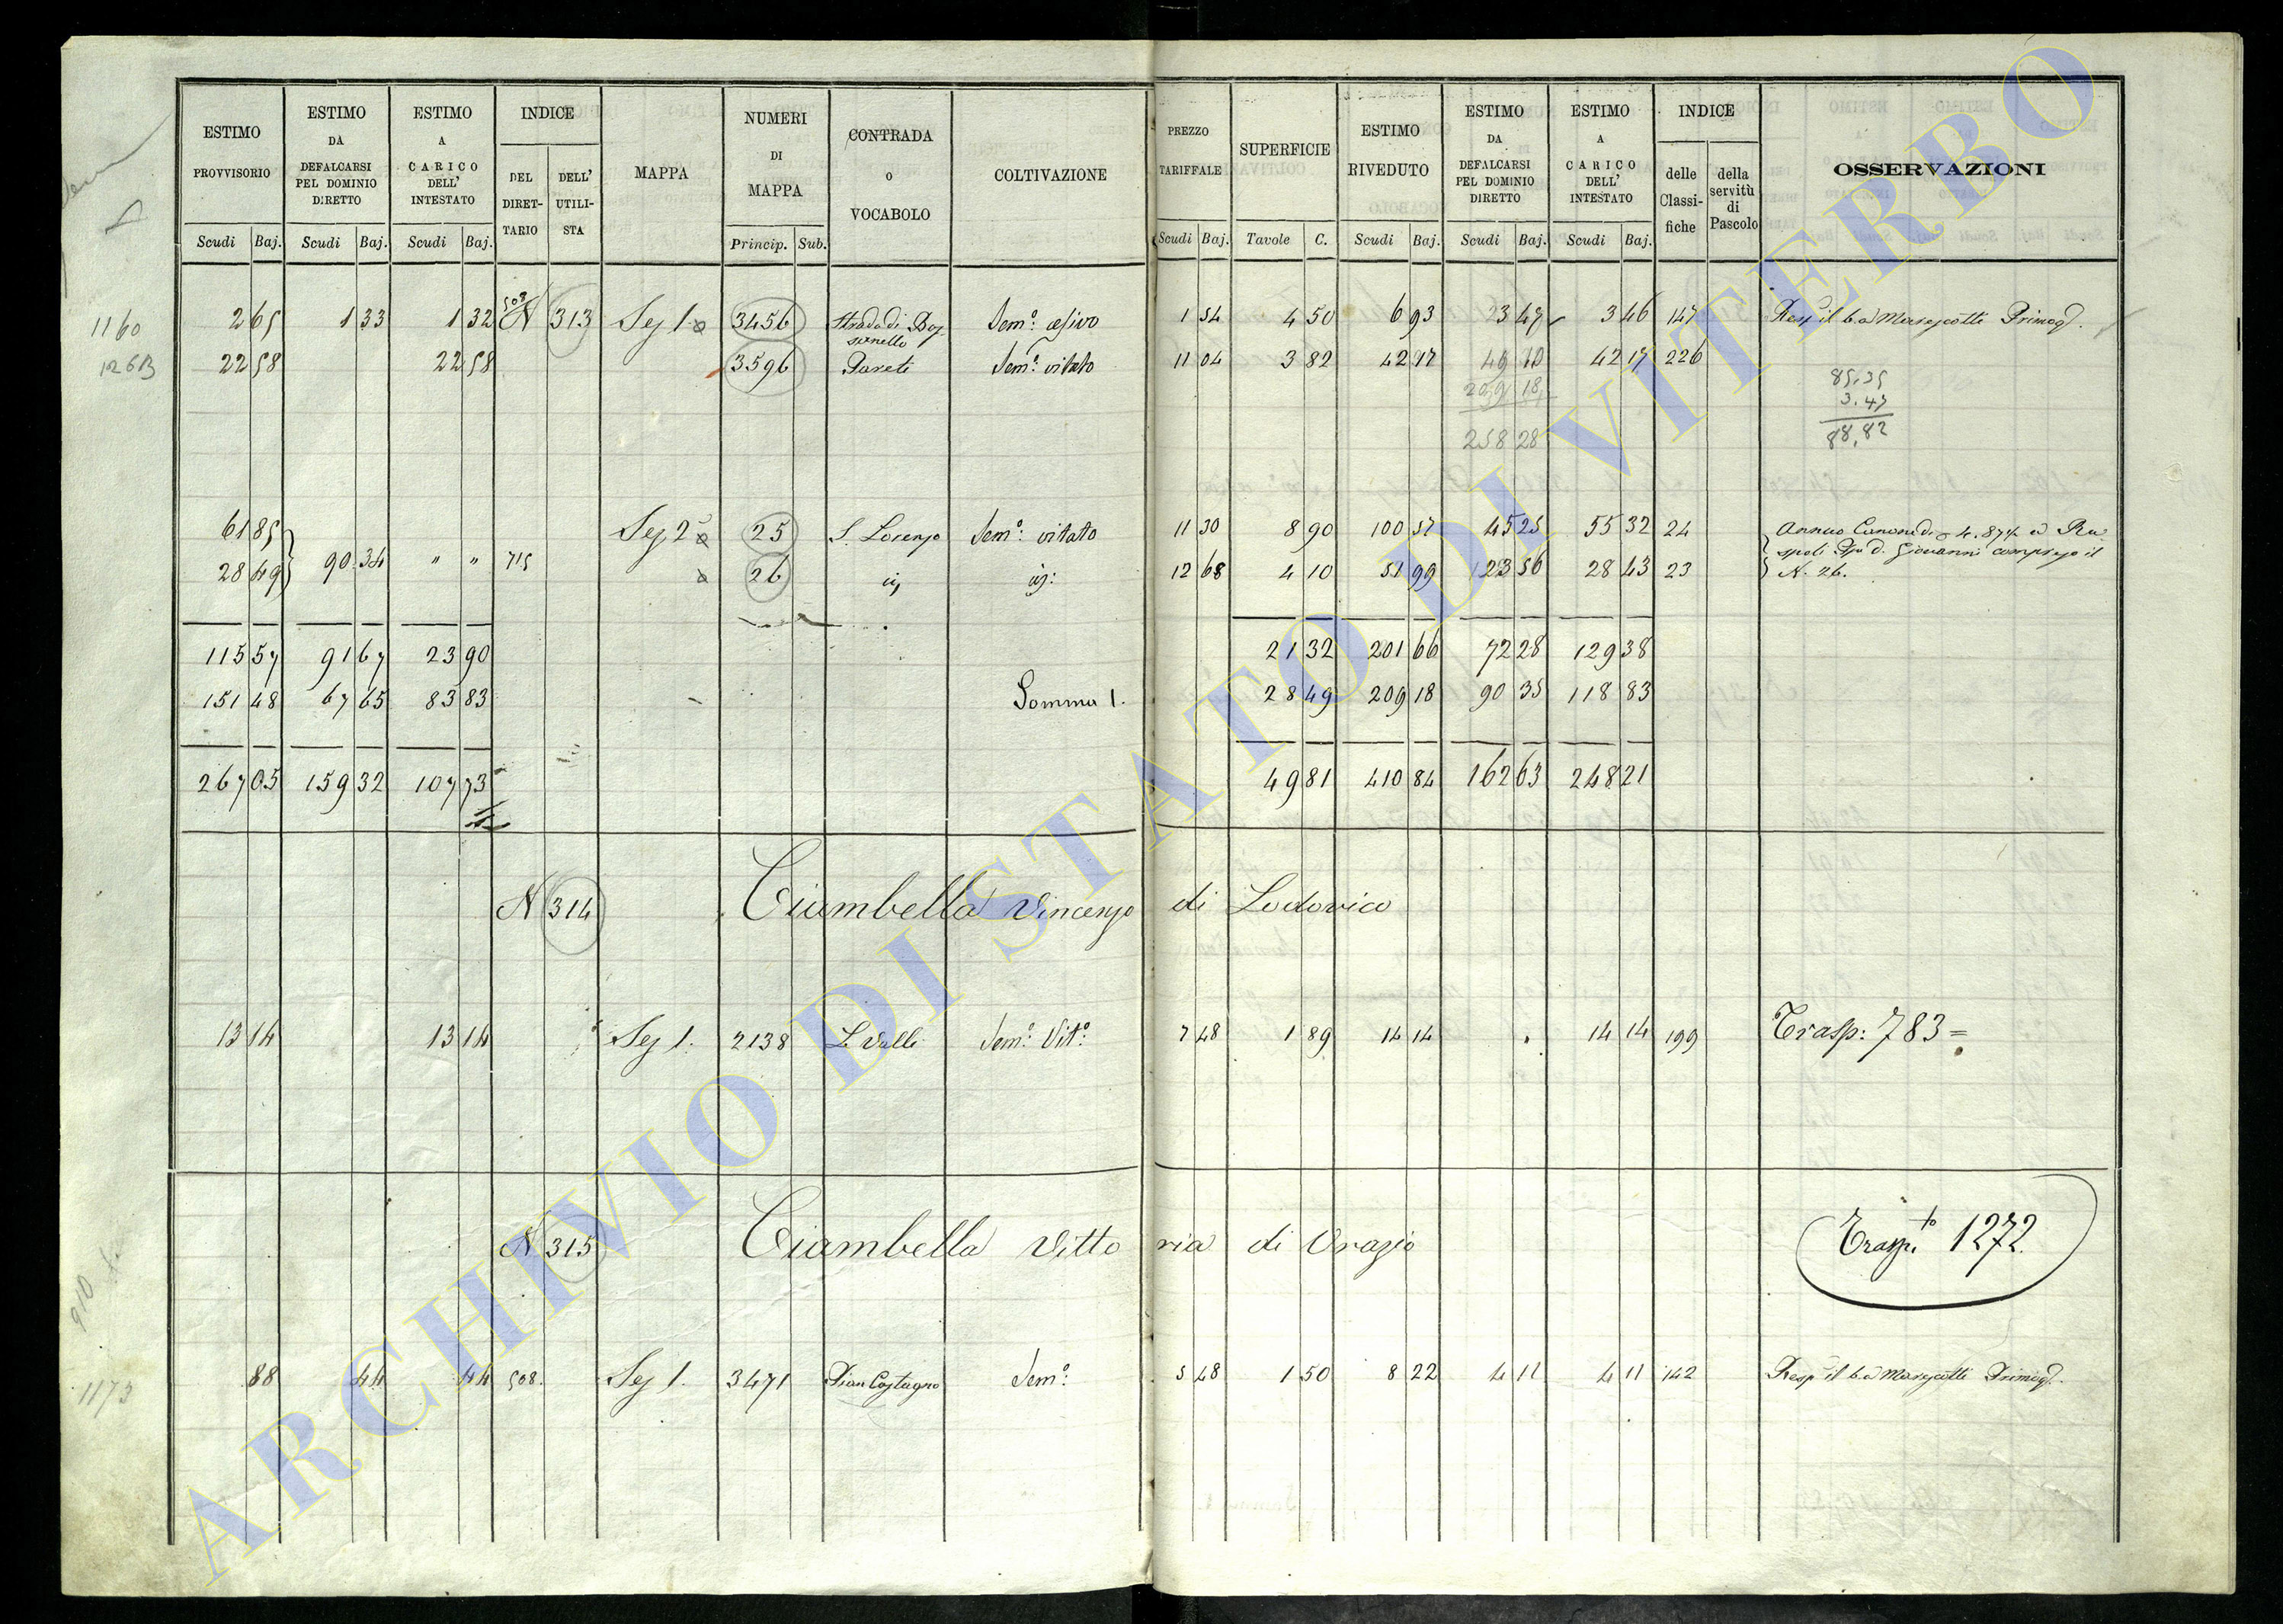 ESTIMO PROVVISORIO
ESTIMO DA DEFALCARSI PEL DOMINIO DIRETTO
ESTIMO A CARICO DELL' INTESTATO
INDICE
DEL DIRET- TARIO
DELL' UTILI- STA
MAPPA
NUMERI DI MAPPA
CONTRADA O VOCABOLO
COLTIVAZIONE
PREZZO TARIFFALE
SUPERFICIE
ESTIMO RIVEDUTO
ESTIMO DA DEFALCARSI PEL DOMINIO DIRETTO
ESTIMO A CARICO DELL' INTESTATO
INDICE
delle Classi- fiche
della servitù di Pascolo
OSSERVAZIONI
Scudi Baj. Scudi Baj. Scudi Baj. Princip. Sub. Scudi Baj. Tavole C. Scudi Baj. Scudi Baj. Scudi Baj.
1160 2 65 1 33 1 32 508 N 313 Sez 1 3456 Strada di Bas- sanello Sem.º olivo 1 54 4 50 6 93 3 47 3 46 147 Resp il b.o Marescotti Primog.
1263 22 58 22 58 3596 Pareti Sem.º vitato 11 04 3 82 42 17 49 10 42 17 226
209 18
258 28
85,35
3.47
88,82
61 85 Sez 2ª 25 S. Lorenzo Sem.º vitato 11 30 8 90 100 57 45 25 55 32 24 Annuo Canone di 4.87½ a Ru-
spoli D. Giovanni compreso il
28 49 90 34 " " 715 26 id. id: 12 68 4 10 51 99 23 56 28 43 23 N. 26.
115 57 91 67 23 90 21 32 201 66 72 28 129 38
151 48 67 65 83 83 Somma 1. 28 49 209 18 90 35 118 83
267 05 159 32 107 73 49 81 410 84 162 63 248 21
N 314 Ciambella Vincenzo di Lodovico
13 14 13 14 Sez 1. 2138 Le Valli Sem.º Vit.º 7 48 1 89 14 14 14 14 199 Trasp: 783=
N 315 Ciambella Vittoria di Orazio
Trasp.to 1272.
910
88 44 44 508. Sez 1. 3471 Pian Castagno Sem.º 5 48 1 50 8 22 4 11 4 11 142 Resp il b.o Marescotti Primog.
1173
ARCHIVIO DI STATO DI VITERBO